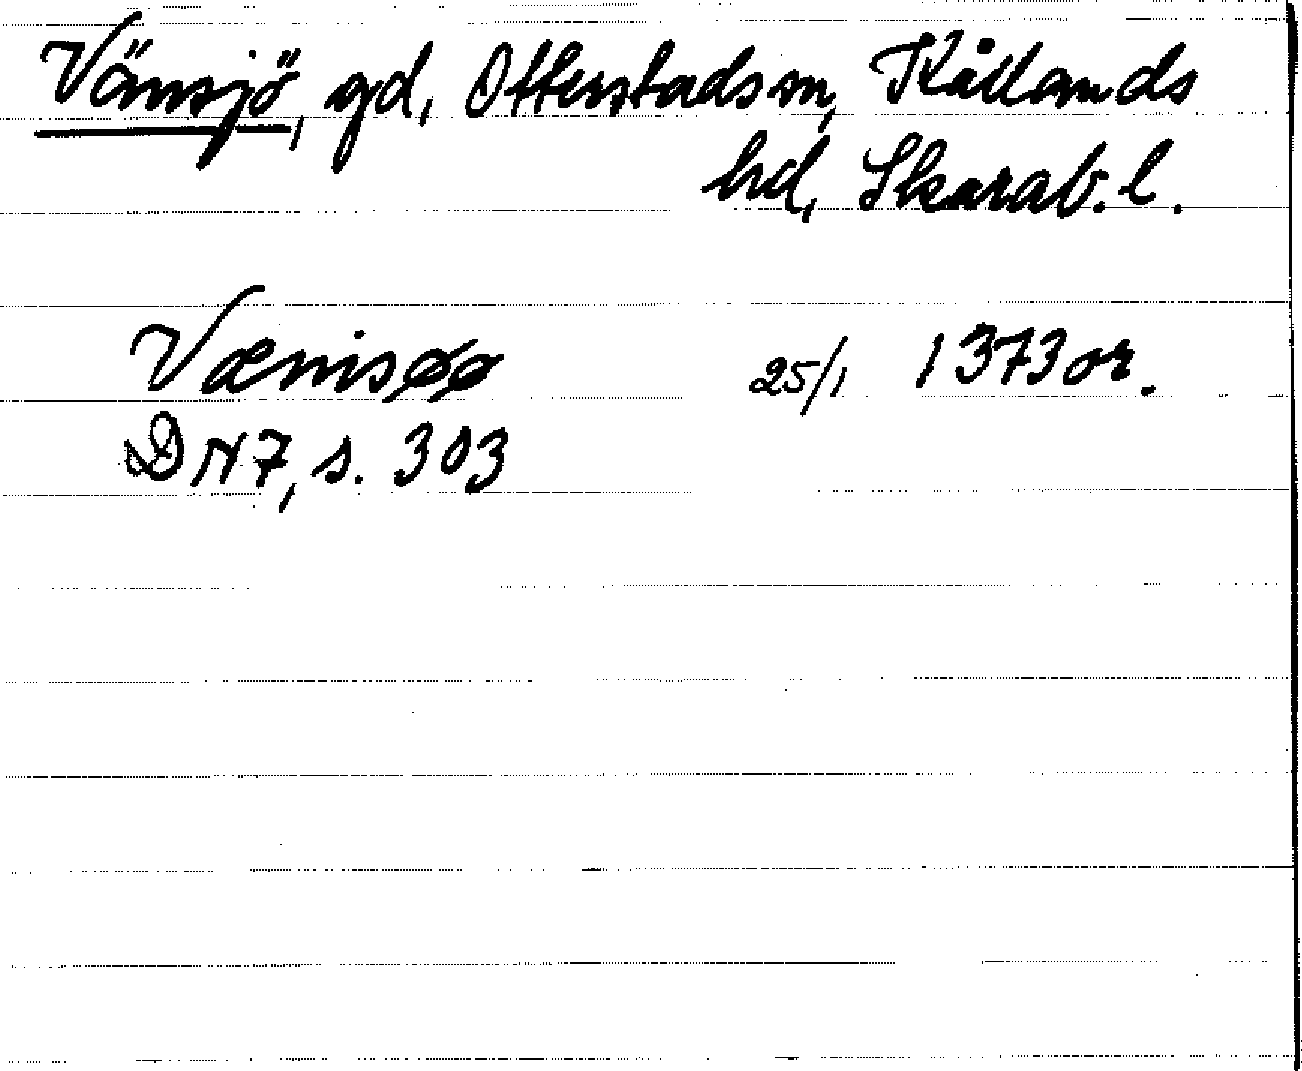 Vänsjö, gd, Otterstads sn, Kållands
hd, Skarab. l.
Vænisøø 25/1 1373 or.
DN 7, s. 303